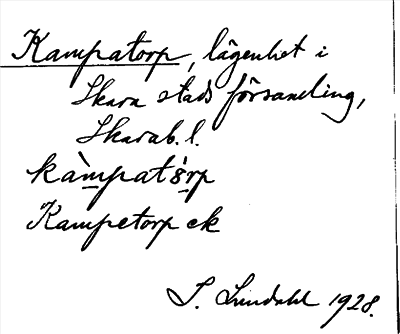 Kampatorp, lägenhet i
Skara stads församling,
Skarab. l.
kàmpat`s̀rp
Kampetorp ek
S. Lundahl 1928.